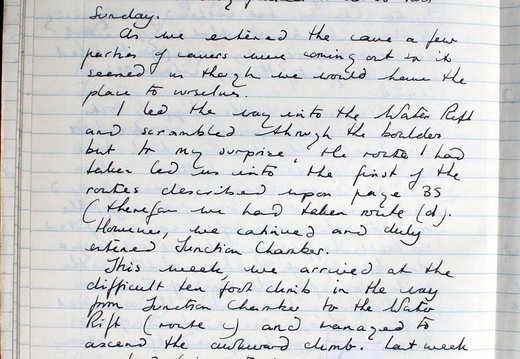 Sunday.
As we entered the cave a few
parties of cavers were coming out so it
seemed as though we would have the
place to ourselves.
I led the way into the Water Rift
and scrambled through the boulders
but to my surprise, the route I had
taken led us into the first of the
routes described upon page 35
(therefore we had taken route (d).
However, we continued and duly
entered Junction Chamber.
This week, we arrived at the
difficult ten foot climb in the way
from Junction Chamber to the Water
Rift (route c) and managed to
ascend the awkward climb. Last week